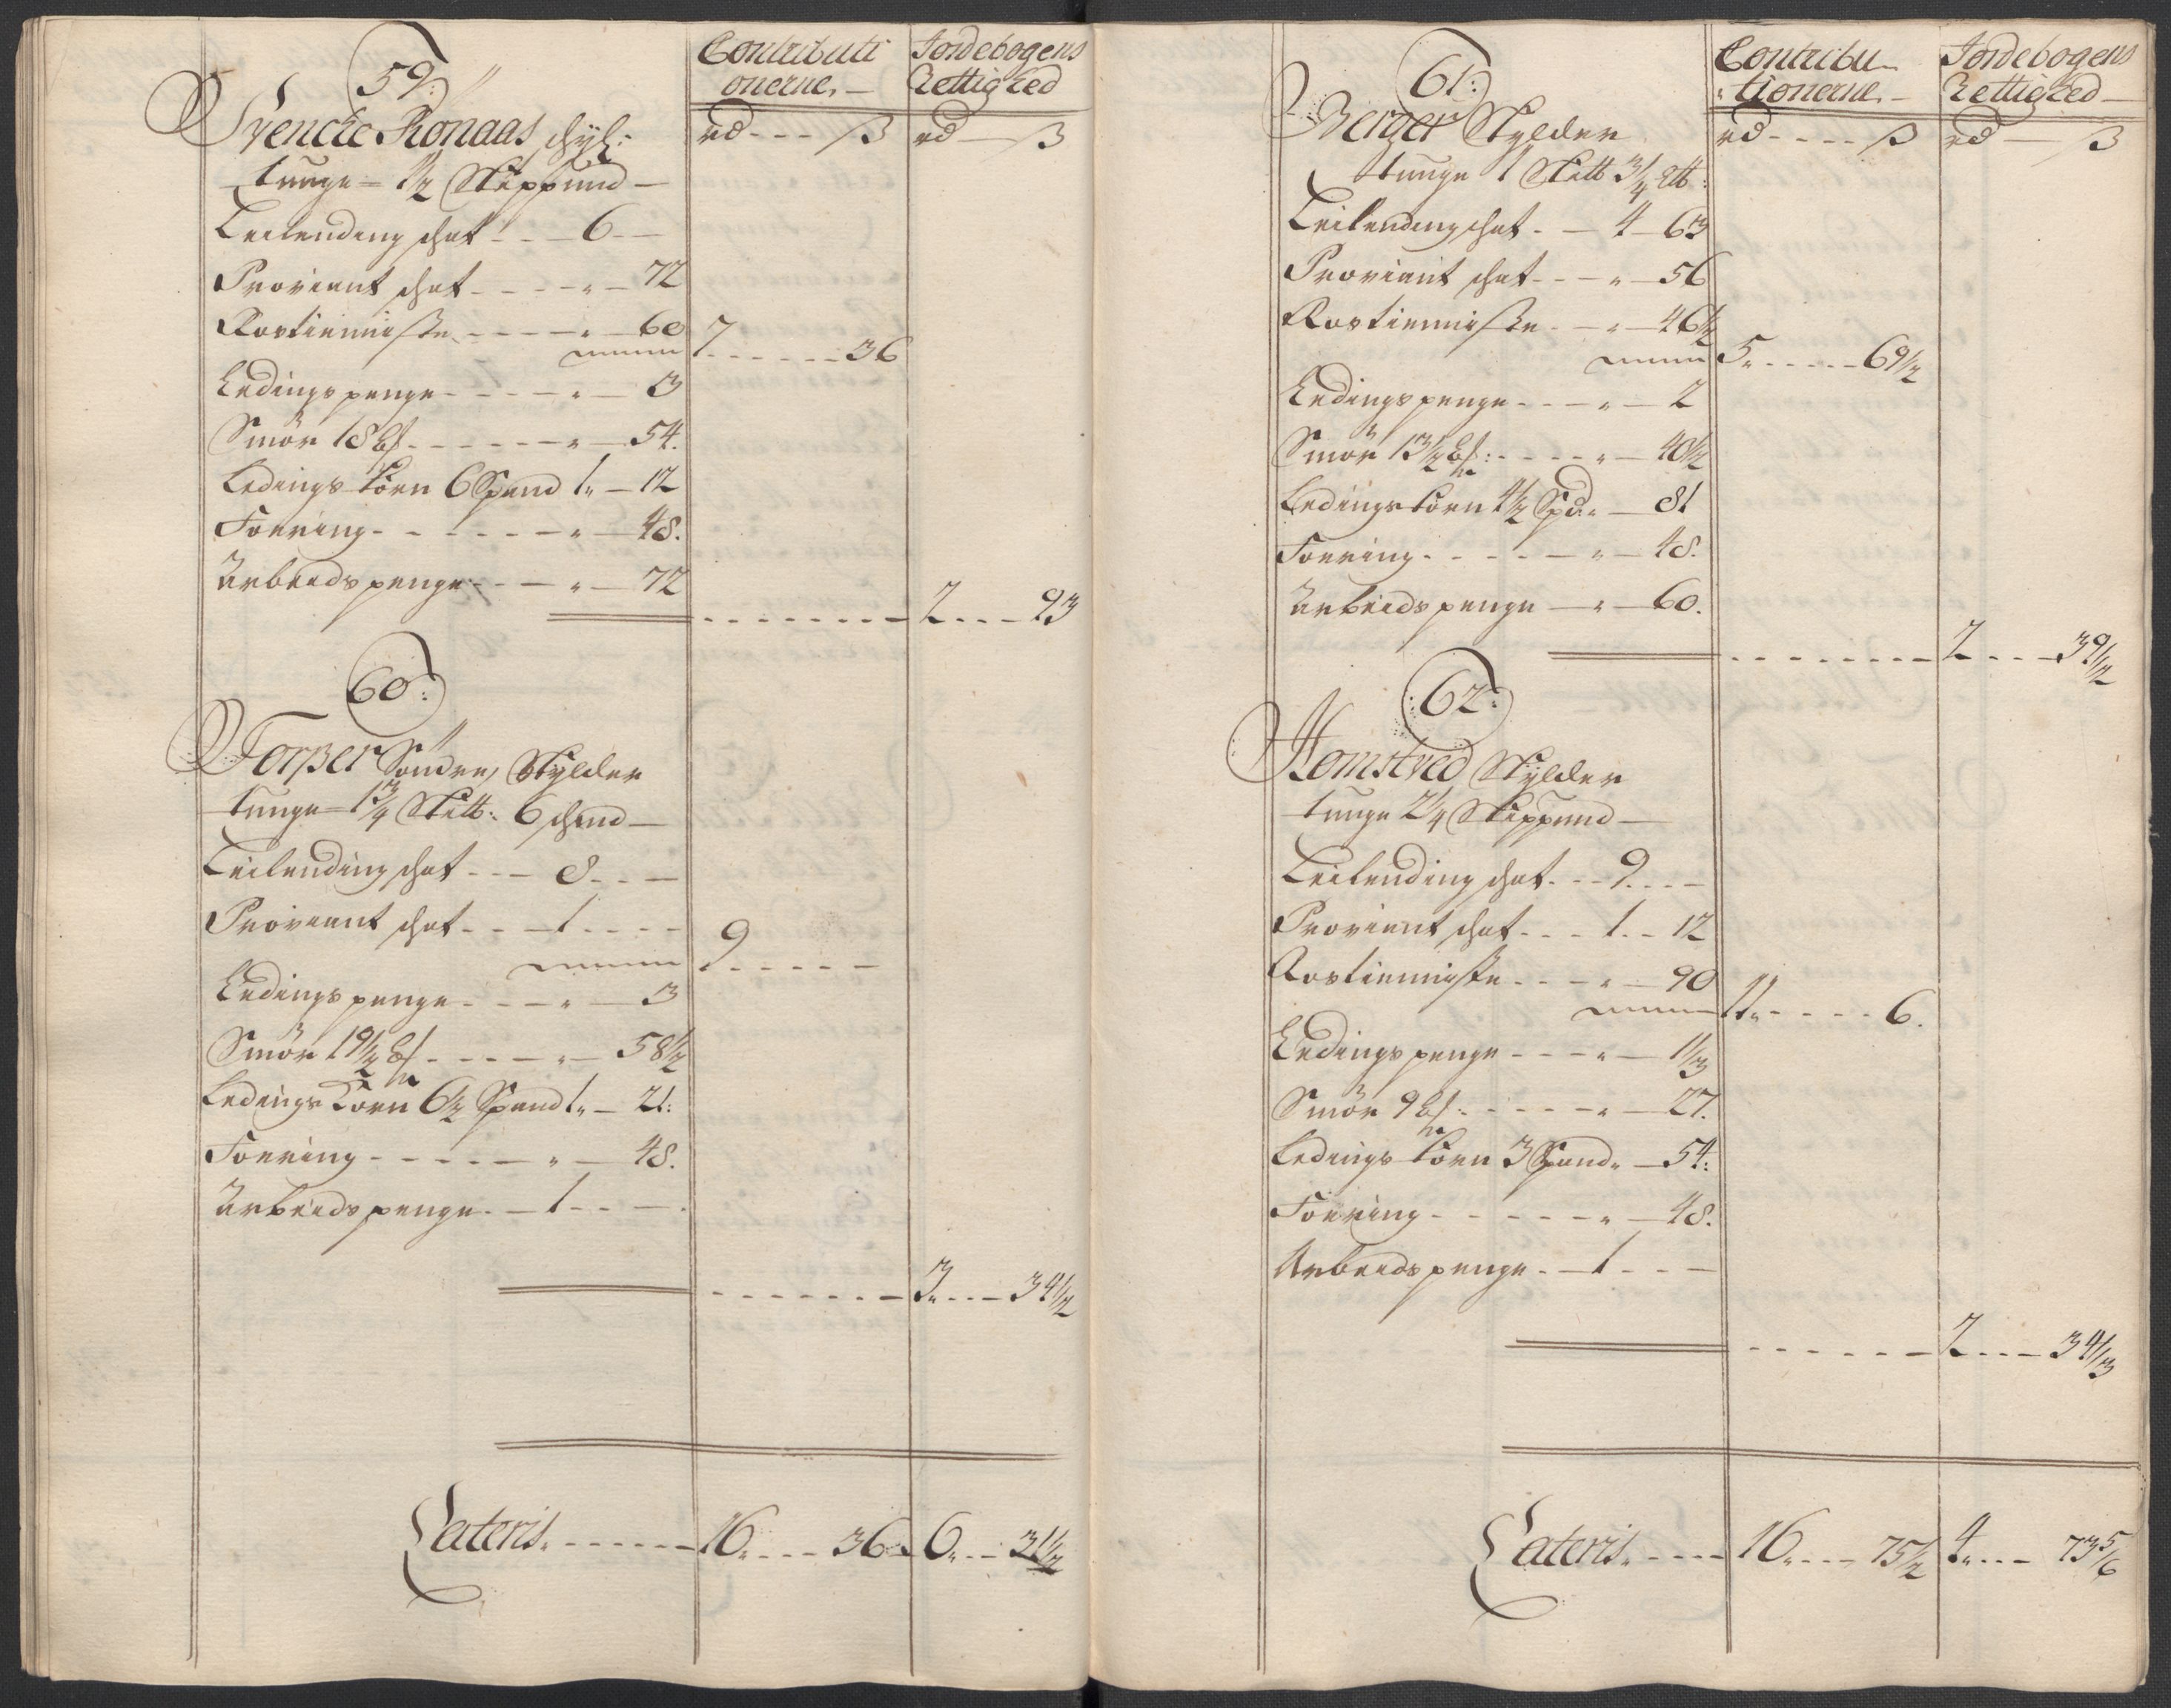 59:
Contributi
onerne.
Jordebogens
Rettighed
Svencke Rönaas schyl:
tunge 1½ Skippund
rd --- ß rd - ß
Leilending schat --- 6 --
Proviant schat ---- " - 72
Rostienniste ---- " - 60
7 ----- 36
Ledingspenge ---- " - 3
Smör 18 --- " - 54.
Ledings Korn 6 Spand 1" - 12
Foering ---- " - 48.
Arbeidspenge --- " - 72
2 --- 93
60:
Torßer Söndre, Skylder
tunge 1¾ Sk℔: 6
Leilending schat --- 8 ---
Proviant schat --- 1 ----
9 -----
Ledingspenge ---- " - 3
Smör 19½ ---- " - 58½
Ledings Korn 6½ Spand 1" - 21:
Foering ---- " - 48.
Arbeidspenge - 1 ---
3" --- 34½
Lateris. ------ 16" --- 36 6" -- 31½
61:
Contribu-
tionerne.
Jordebogens
Rettighed
Berger Skylder
tunge 1 Sk℔ 3/4
rd ---- ß rd - ß
Leilending schat - 4 - 63
Proviant schat --- " - 56
Rostienniste -- " - 46½
5" ----- 69½
Ledingspenge --- " - 2
Smör 13½ ---- " - 40½
Ledings Korn 4½ Spd: " - 81
Foering ---- " - 48.
Arbeidspenge - " - 60.
2 --- 39½
62:
Homstved Skylder
tunge 2¼ Skippund
Leilending schat --- 9 ----
Proviant schat --- 1 -- 12
Rostienniste --- " - 90
11" ---- 6.
Ledingspenge --- " - 1⅓
Smör 9 ---- " - 27.
Ledings Korn 3 Spand " - 54:
Foering ----- " - 48.
Arbeidspenge -- 1 ---
2 --- 34⅓
Lateris. ---- 16" --- 75½ 4" -- 73⅚